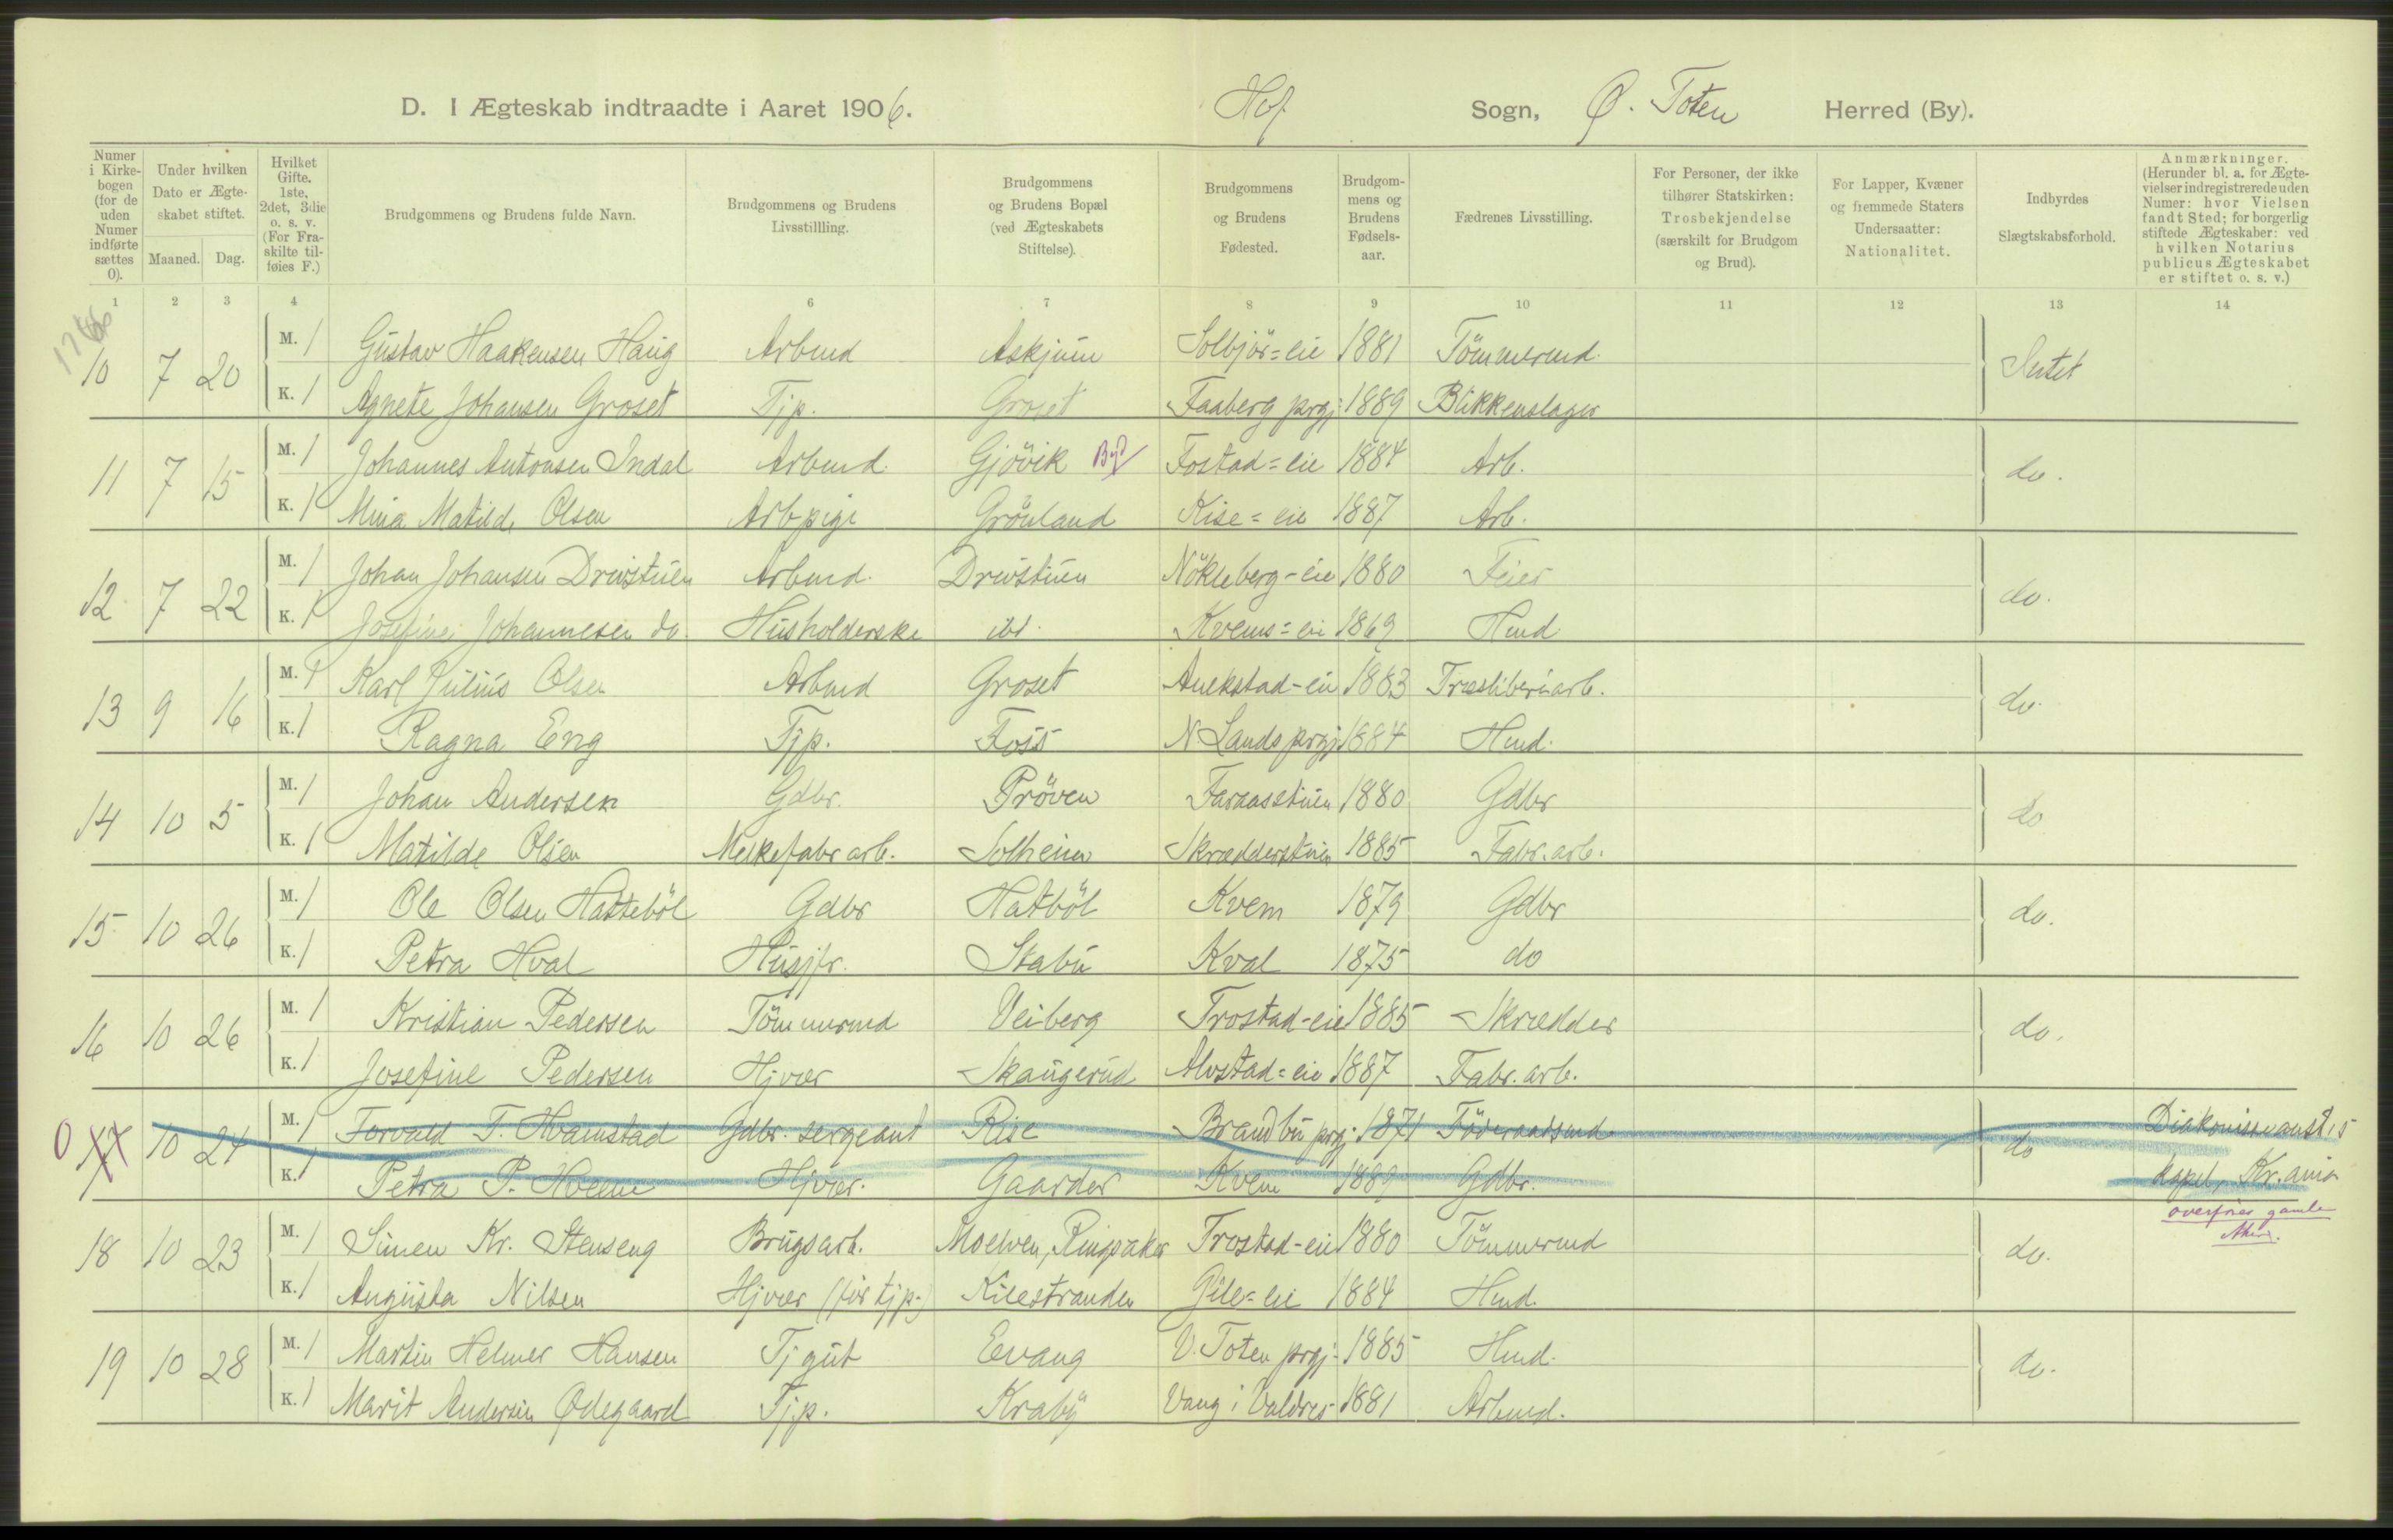 D. I Ægteskab indtraadte i Aaret 1906. Hof Sogn, Ø. Toten Herred (By).
Numer i Kirkebogen (for de uden Numer indførte sættes 0).
Under hvilken Dato er Ægteskabet stiftet.
Maaned. Dag.
Hvilket Gifte. 1ste, 2det, 3die o. s. v. (For Fraskilte tilføies F.)
Brudgommens og Brudens fulde Navn.
Brudgommens og Brudens Livsstillling.
Brudgommens og Brudens Bopæl (ved Ægteskabets Stiftelse).
Brudgommens og Brudens Fødested.
Brudgommens og Brudens Fødselsaar.
Fædrenes Livsstilling.
For Personer, der ikke tilhører Statskirken: Trosbekjendelse (særskilt for Brudgom og Brud).
For Lapper, Kvæner og fremmede Staters Undersaatter: Nationalitet.
Indbyrdes Slægtskabsforhold.
Anmærkninger. (Herunder bl. a. for Ægtevielser indregistrerede uden Numer: hvor Vielsen fandt Sted; for borgerlig stiftede Ægteskaber: ved hvilken Notarius publicus Ægteskabet er stiftet o. s. v.)
1 2 3 4 6 7 8 9 10 11 12 13 14
10 7 20 M. 1 Gustav Haakensen Haug Arbmd Askjum Solbjør=eie 1881 Tömmermd. Intet
K. 1 Agnete Johansen Groset Tjp. Groset Faaberg prgj: 1889 Blikkenslager
11 7 15 M. 1 Johannes Antonsen Indal Arbmd. Gjövik By Fostad=eie 1884 Arb. do.
K. 1 Mina Matilde Olsen Arbpige Grönland Kise=eie 1887 Arb.
12 7 22 M. 1 Johan Johansen Drivstuen Arbmd. Drivstuen Nökleberg-eie 1880 Feier do.
K. 1 Josefine Johannesen do. Husholderske ibd. Kvems=eie 1869 Hmd
13 9 16 M. 1 Karl Julius Olsen Arbmd Groset Anekstad-eie 1883 Træsliberiarb. do.
K. 1 Ragna Eng Tjp. Foss N. Lands prgj 1884 Hmd.
14 10 5 M. 1 Johan Andersen Gdbr. Pröven Faraasstuen 1880 Gdbr do
K. 1 Matilde Olsen Melkefabr arb. Solheim Skrædderstuen 1885 Fabr. arb.
15 10 26 M. 1 Ole Olsen Hatteböl Gdbr Hatböl Kvem 1879 Gdbr do.
K. 1 Petra Hval Husjfr. Stabu Kval 1875 do
16 10 26 M. 1 Kristian Pedersen Tömmermd Veiberg Trostad-eie 1885 Skrædder do.
K. 1 Josefine Pedersen Hjvær Skaugerud Alvstad=eie 1887 Fabr. arb.
0 17 10 24 M. 1 Torvald T. Hvamstad Gdbr. sergeant Rise Brandbu prgj. 1871 Föderaadsmd do Diakonisseanst.s
K. 1 Petra P. Hveem Hjvær. Gaarder Kvem 1889 Gdbr. kapel, Kr.ania
overføres gamle
Aker.
18 10 23 M. 1 Simen Kr. Stenseng Brugsarb. Moelven, Ringsaker Trostad-eie 1880 Tömmermd do.
K. 1 Augusta Nilsen Hjvær (før tjp.) Kilestranden Gile=eie 1884 Hmd.
19 10 28 M. 1 Martin Helmer Hansen Tjgut Evang V. Toten prgj: 1885 Hmd. do.
K. 1 Marit Andersen Ødegaard Tjp. Kraby Vang i Valdres 1881 Arbmd.